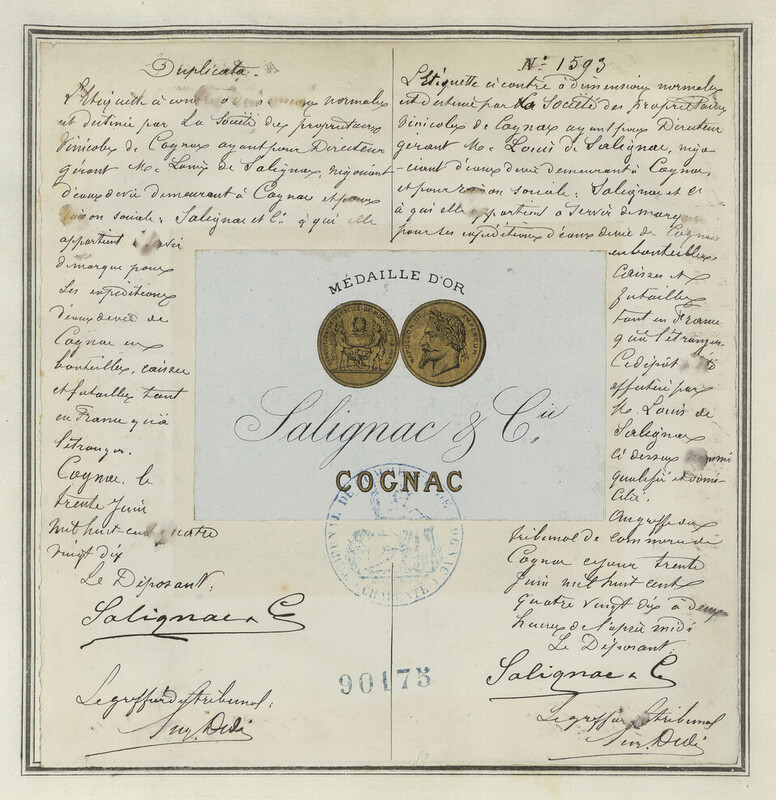 Duplicata.
L'Etiquette ci contre à dimensions normales
est destinée par La Société des propriétaires
Vinicoles de Cognac ayant pour Directeur
gerant Mr Louis de Salignac, négociant
d'eaux de vie demeurant à Cognac et pour
raison sociale: Salignac et Cie à qui elle
appartient à servir
de marque pour
ses expéditions
d'eaux de vie de
Cognac en
bouteilles, caisses
et futailles tant
en France qu'à
l'étranger.
Cognac, le
trente Juin
mil huit cent quatre
vingt dix
Le Déposant:
Salignac & Cie
Le greffier du tribunal:
N° 1593
L'Etiquette ci contre à dimensions normales
est destinée par La Société des propriétaires
Vinicoles de Cognac ayant pour Directeur
gerant Mr Louis de Salignac, négo-
-ciant d'eaux de vie demeurant à Cognac
et pour raison sociale: Salignac et Cie
à qui elle appartient à servir de marque
pour ses expéditions d'eaux de vie de Cognac
en bouteilles
caisses et
futailles
tant en France
qu'à l'étranger.
Ce dépôt été
effectué par
Mr. Louis de
Salignac
ci dessus nommé
qualifié et domi-
cilié.
Au greffe du
tribunal de commerce de
Cognac ce jour trente
Juin mil huit cent
quatre vingt dix à deux
heures de l'après midi
Le Déposant
Salignac & Cie
Le greffier du tribunal
MÉDAILLE D'OR
Salignac & Cie
COGNAC
TRIBUNAL DE COMMERCE COGNAC
CHARENTE
90175